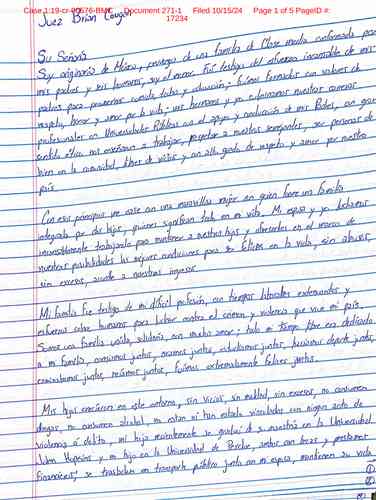 Case 1:19-cr-00576-BMC Document 271-1 Filed 10/15/24 Page 1 of 5 PageID #:
17234
Juez Brian Cougan
Su Señoría
Soy originario de México, provengo de una familia de Clase media conformada por
mis padres y seis hermanos, soy el menor. Fui testigo del esfuerzo incansable de mis
padres para proveernos comida, techo y educación; fuimos formados con valores de
respeto, honor y amor por la vida; mis hermanos y yo culminamos nuestras carreras
profesionales en Universidades Públicas con el apoyo y conducción de mis Padres, con gran
sentido ético nos enseñaron a trabajar, respetar a nuestros semejantes, ser personas de
bien en la comunidad, libres de vicios y con alto grado de respeto y amor por nuestro
país.
Con esos principios me casé con una maravillosa mujer en quien formé una familia
integrada por dos hijos, quienes significan todo en mi vida. Mi esposa y yo
incansablemente trabajando para mantener a nuestros hijos y ofrecerles en el marco de
nuestras posibilidades las mejores condiciones para ser felices en la vida, sin abusos,
sin excesos, acorde a nuestros ingresos.
Mi familia fue testigo de mi difícil profesión, con tiempos laborales extenuantes y
esfuerzos sobre humanos para luchar contra el crimen y violencia que vive mi país.
Somos una familia unida, solidaria, con mucho amor; todo mi tiempo libre era dedicado
a mi familia, comíamos juntos, orábamos juntos, estudiábamos juntos, hacíamos deporte juntos,
caminábamos juntos, reíamos juntos, fuimos extremadamente felices juntos.
Mis hijos crecieron en este entorno, sin vicios, sin maldad, sin excesos, no consumen
drogas, no consumen alcohol, no están ni han estado vinculados con ningún acto de
violencia o delito, mi hija recientemente se graduó de su maestría en la Universidad
John Hopkins y mi hijo en la Universidad de Purdue, ambos con becas y préstamos
financieros; se trasladan en transporte público junto con mi esposa, mantienen su vida